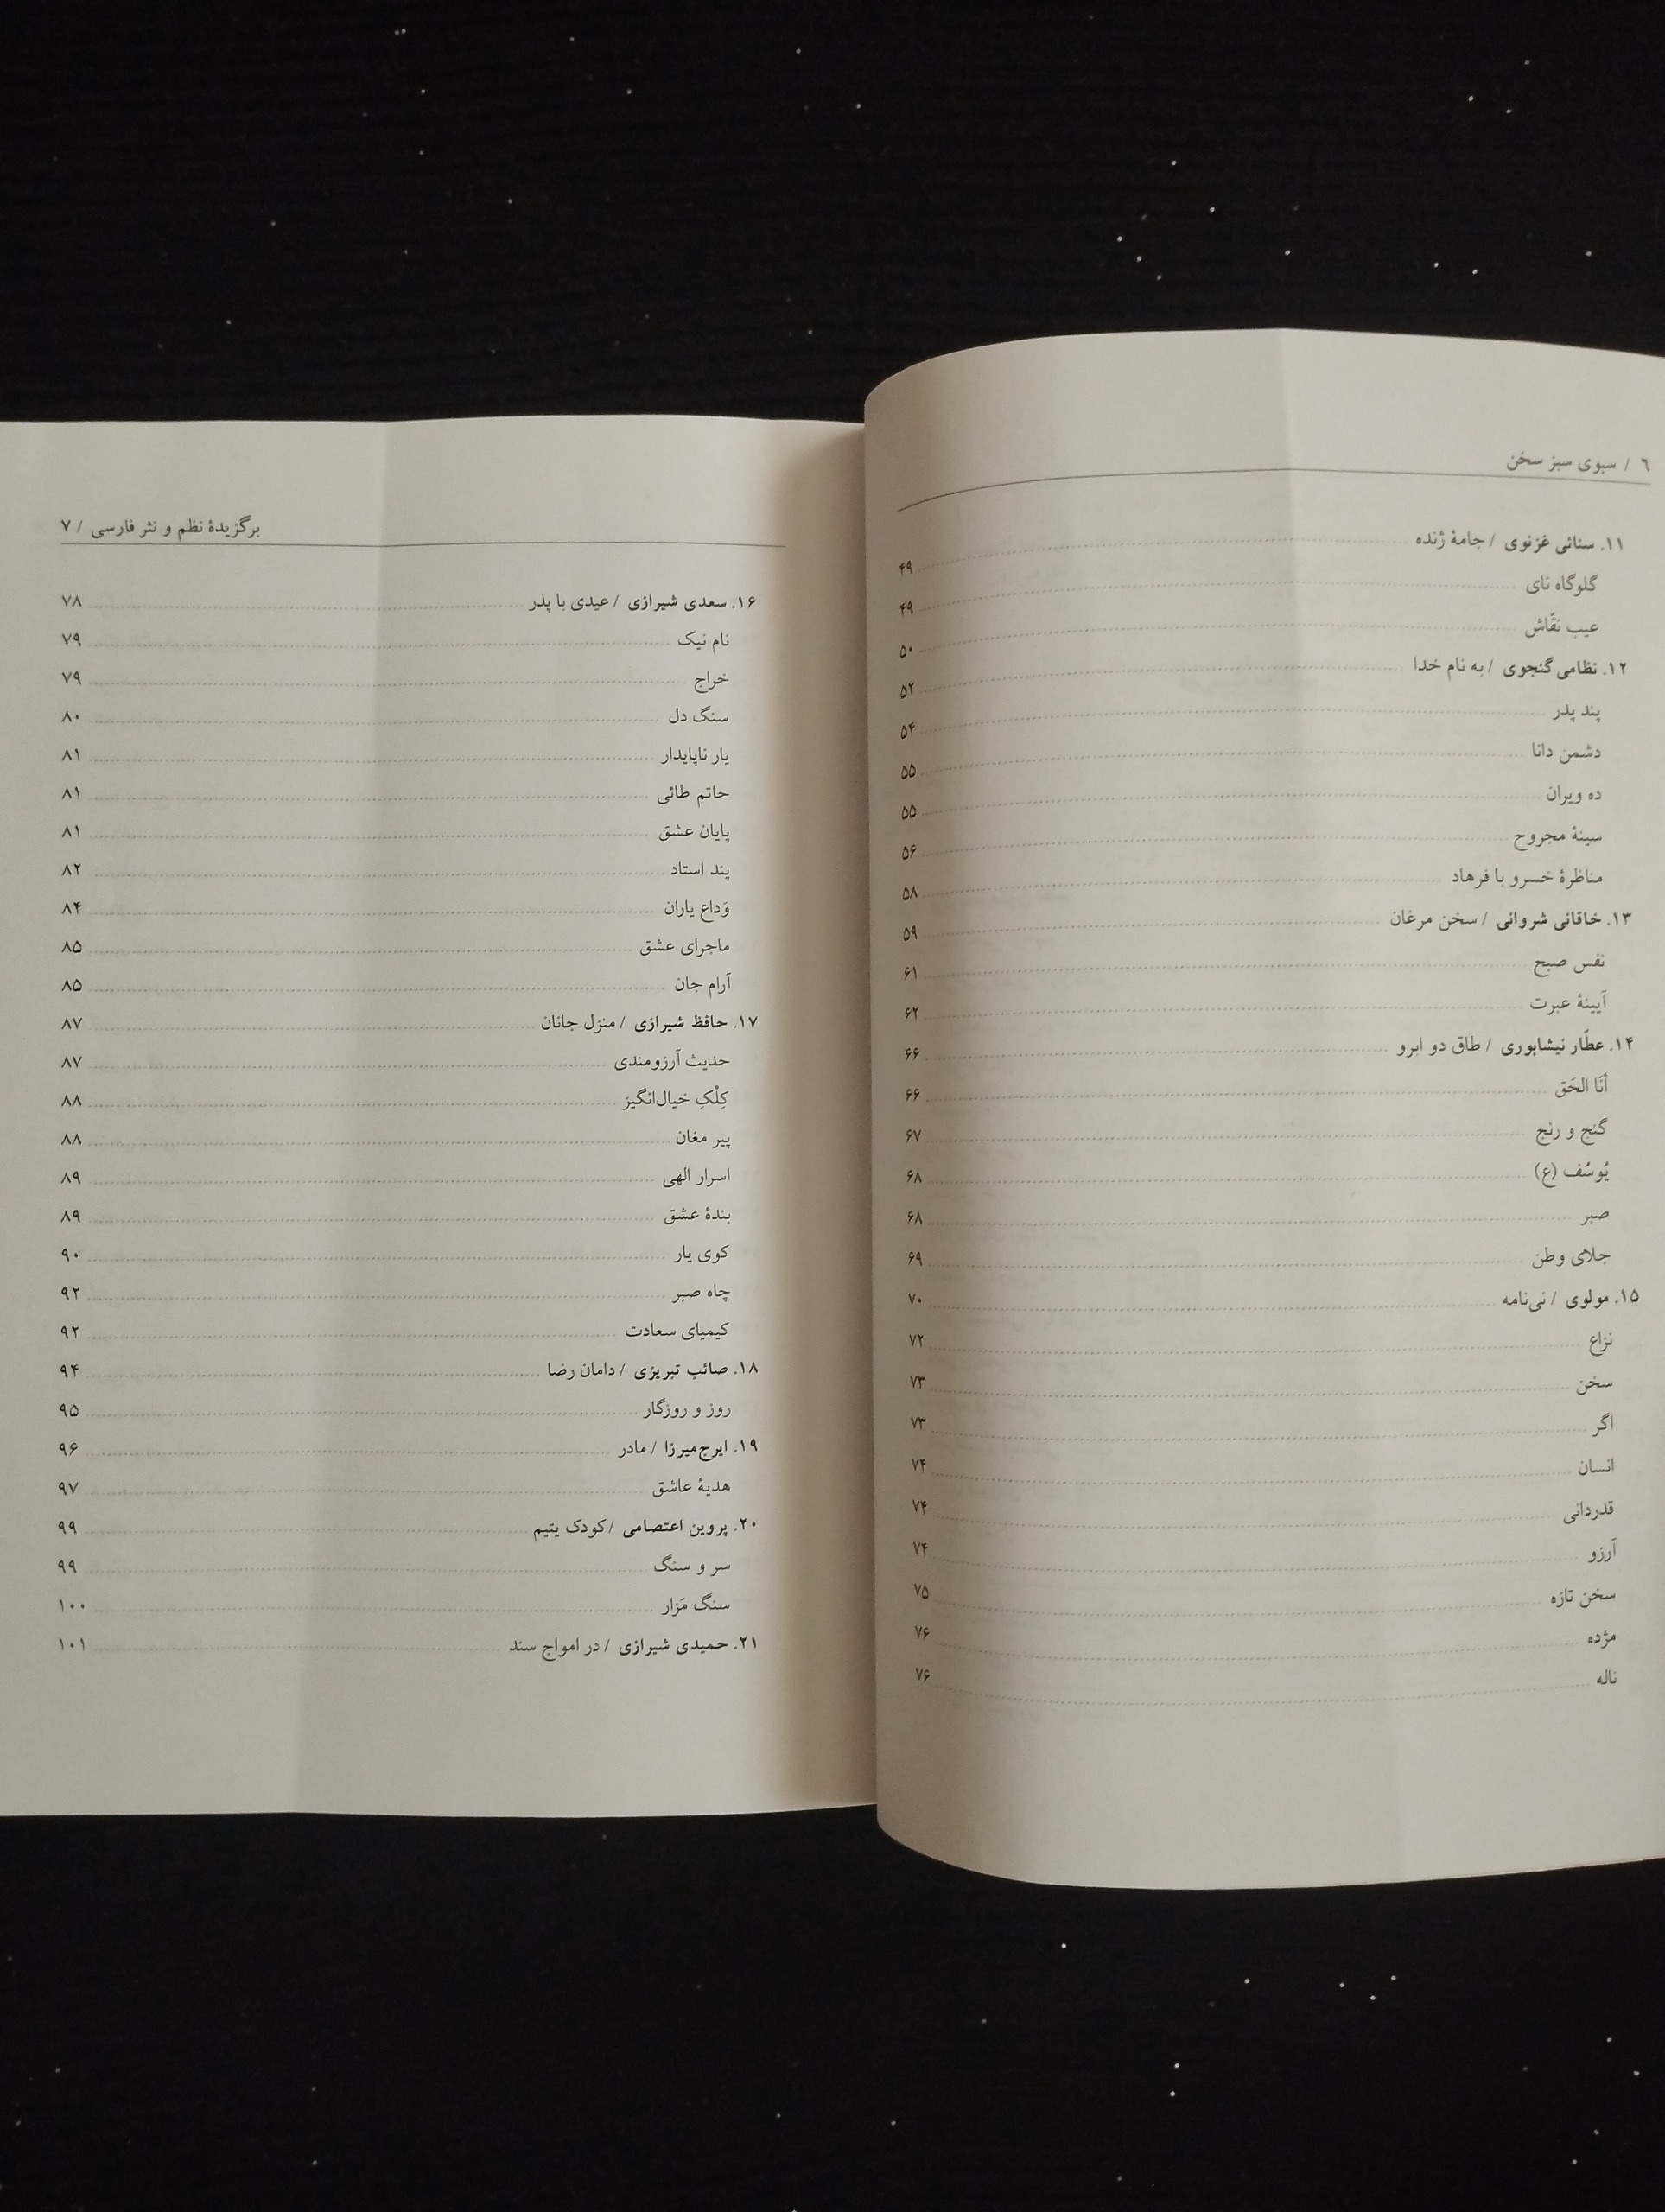 ۶ / سبوی سبز سخن
۱۱. سنائی غزنوی / جامهٔ ژنده ۴۹
گلوگاه نای ۴۹
عیب نقّاش ۵۰
۱۲. نظامی گنجوی / به نام خدا ۵۲
پند پدر ۵۴
دشمن دانا ۵۵
ده ویران ۵۵
سینهٔ مجروح ۵۶
مناظرهٔ خسرو با فرهاد ۵۸
۱۳. خاقانی شروانی / سخن مرغان ۵۹
نفس صبح ۶۱
آیینهٔ عبرت ۶۲
۱۴. عطّار نیشابوری / طاق دو ابرو ۶۶
أنَا الحَق ۶۶
گنج و رنج ۶۷
یُوسُف (ع) ۶۸
صبر ۶۸
جلای وطن ۶۹
۱۵. مولوی / نی‌نامه ۷۰
نزاع ۷۲
سخن ۷۳
اگر ۷۳
انسان ۷۴
قدردانی ۷۴
آرزو ۷۴
سخن تازه ۷۵
مژده ۷۶
ناله ۷۶
برگزیدهٔ نظم و نثر فارسی / ۷
۱۶. سعدی شیرازی / عیدی با پدر ۷۸
نام نیک ۷۹
خراج ۷۹
سنگ دل ۸۰
یار ناپایدار ۸۱
حاتم طائی ۸۱
پایان عشق ۸۱
پند استاد ۸۲
وَداع یاران ۸۴
ماجرای عشق ۸۵
آرام جان ۸۵
۱۷. حافظ شیرازی / منزل جانان ۸۷
حدیث آرزومندی ۸۷
کِلْکِ خیال‌انگیز ۸۸
پیر مغان ۸۸
اسرار الهی ۸۹
بندهٔ عشق ۸۹
کوی یار ۹۰
چاه صبر ۹۲
کیمیای سعادت ۹۲
۱۸. صائب تبریزی / دامان رضا ۹۴
روز و روزگار ۹۵
۱۹. ایرج‌میرزا / مادر ۹۶
هدیهٔ عاشق ۹۷
۲۰. پروین اعتصامی / کودک یتیم ۹۹
سر و سنگ ۹۹
سنگ مَزار ۱۰۰
۲۱. حمیدی شیرازی / در امواج سند ۱۰۱